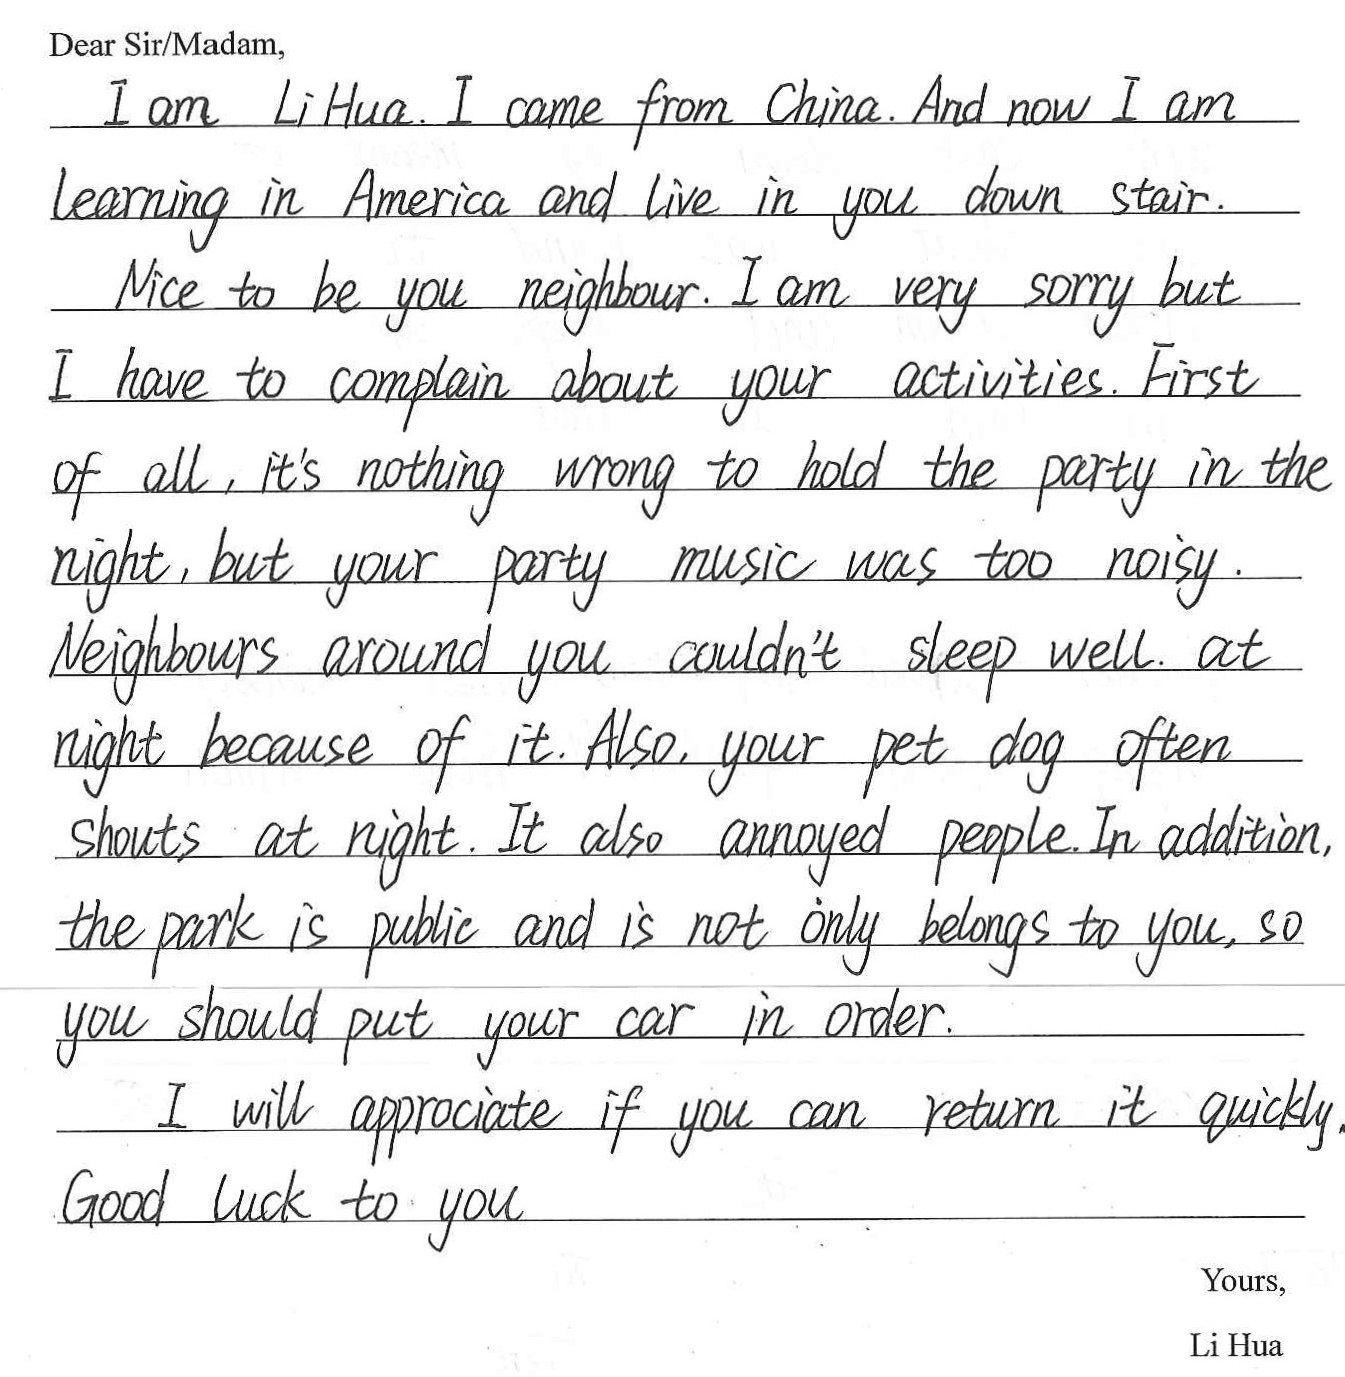 Dear Sir/Madam,
I am Li Hua. I came from China. And now I am
learning in America and live in you down stair.
Nice to be you neighbour. I am very sorry but
I have to complain about your activities. First
of all, it's nothing wrong to hold the party in the
night, but your party music was too noisy.
Neighbours around you couldn't sleep well. at
night because of it. Also, your pet dog often
shouts at night. It also annoyed people. In addition,
the park is public and is not only belongs to you, so
you should put your car in order.
I will approciate if you can return it quickly.
Good luck to you
Yours,
Li Hua